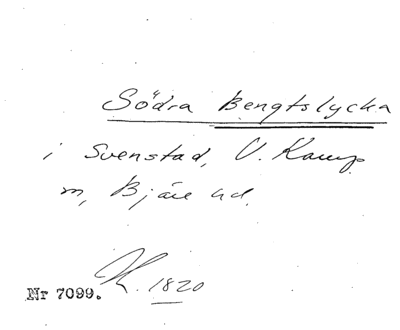 Södra Bengtslycka
i Svenstad, V. Karup
sn, Bjäre hd.
K. 1820
Nr 7099.